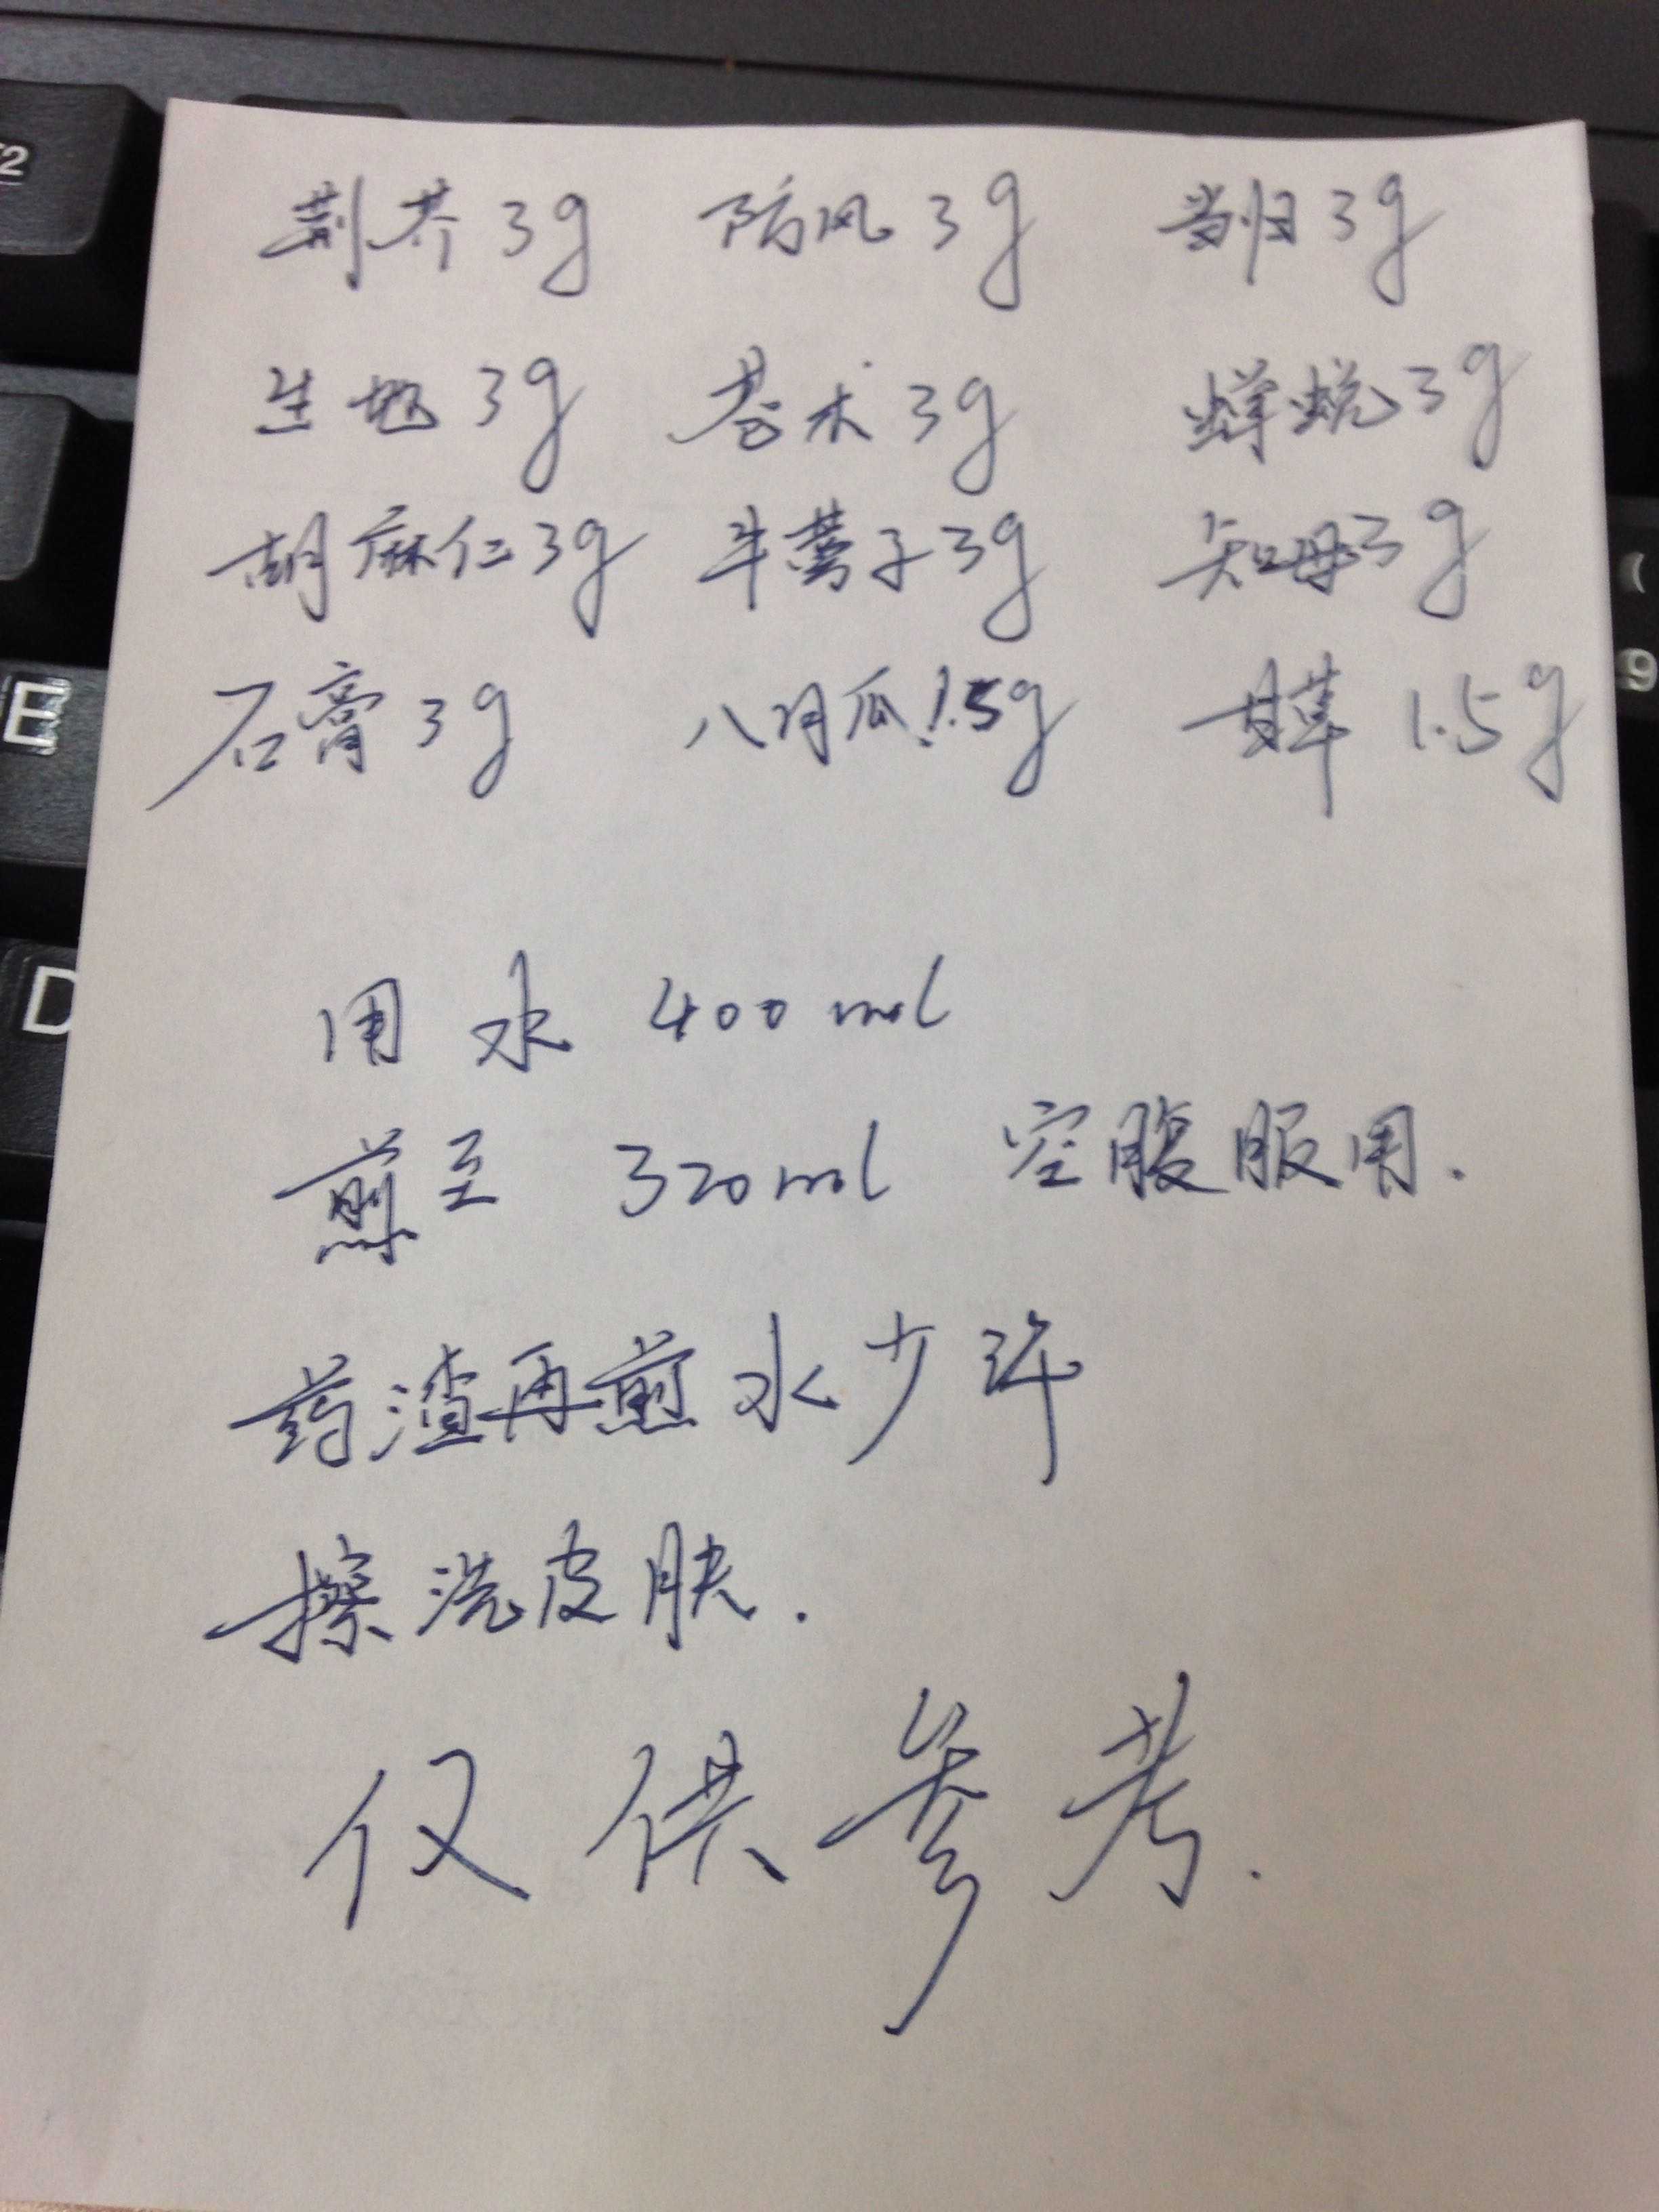 荆芥3g 防风3g 当归3g
生地3g 苍术3g 蝉蜕3g
胡麻仁3g 牛蒡子3g 知母3g
石膏3g 八月瓜1.5g 甘草1.5g
用水400ml
煎至320ml 空腹服用.
药渣再煎水少许
擦洗皮肤.
仅供参考.
E
D
9